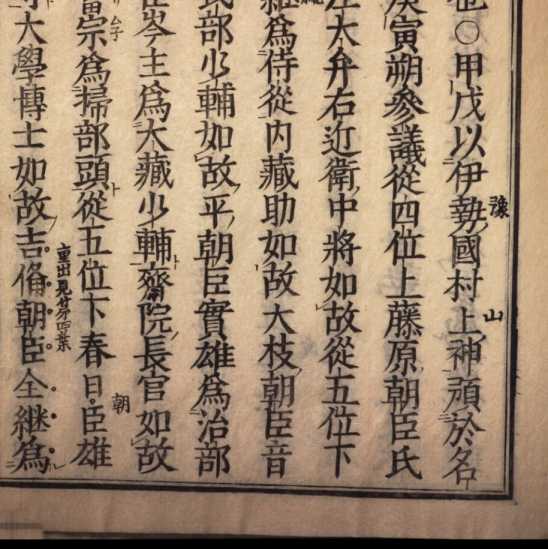 也○甲戊以伊勢國村上神預於名
庚寅朔參議從四位上藤原朝臣氏
左大弁右近衛中將如故從五位下
継為侍從内藏助如故大枝朝臣音
民部少輔如故平朝臣實雄為治部
岑主為大藏少輔齋院長官如故
宗為掃部頭從五位下春日臣雄
大學博士如故吉備朝臣全継為
豫
山
朝
重出見